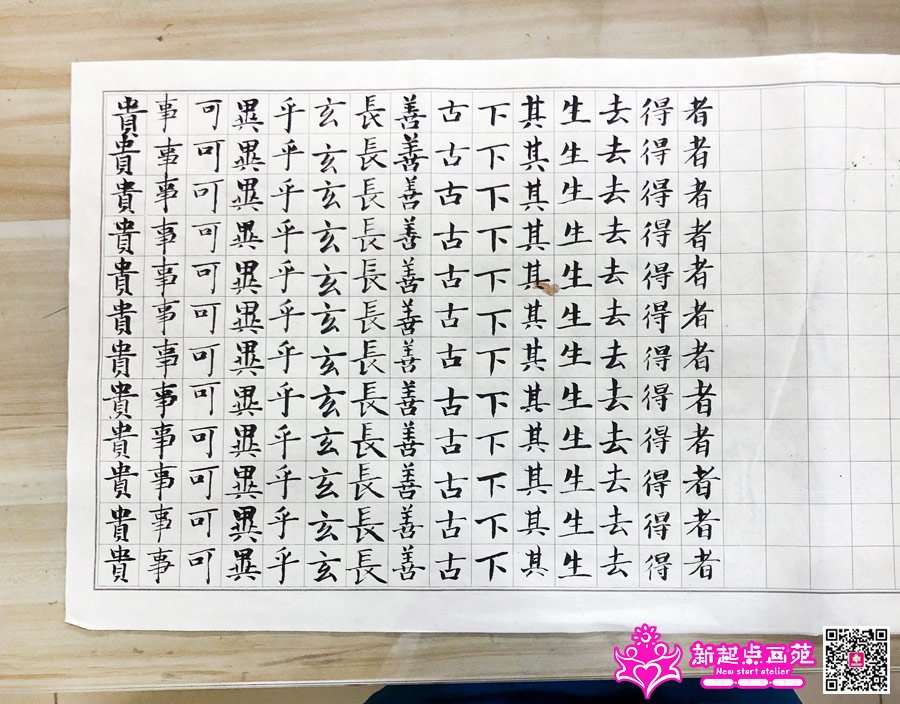 貴事可異乎玄長善古下其生去得者
貴事可異乎玄長善古下其生去得者
貴事可異乎玄長善古下其生去得者
貴事可異乎玄長善古下其生去得者
貴事可異乎玄長善古下其生去得者
貴事可異乎玄長善古下其生去得者
貴事可異乎玄長善古下其生去得者
貴事可異乎玄長善古下其生去得者
貴事可異乎玄長善古下其生去得者
貴事可異乎玄長善古下其生去得者
貴事可異乎玄長善古下其生去得者
貴事可異乎玄長善古下其生去得者
新起点画苑
New start atelier